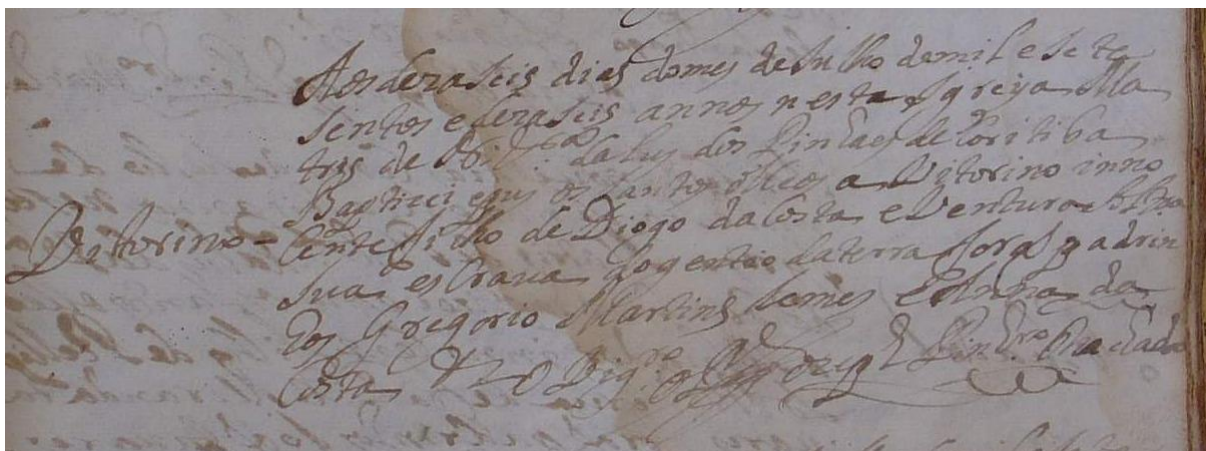 Aos dezaseis dias do mes de Julho de mil e sete
sentos e dezaseis annos nesta Igreja Ma
tris de N. Srª da Luz dos Pinhaes de Coritiba
Baptizei e puz os santos oleos a Vitorino inno
Vitorino - cente filho de Diogo da Costa e Ventura
sua escrava do gentio da terra forão padrin
hos Gregorio Martins Lemes e Anna da
Costa O Vigrº